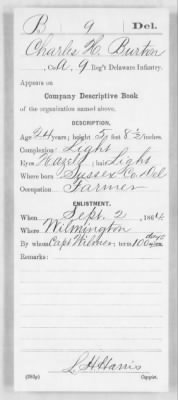 B 9 Del.
Charles H. Burton
, Co. A, 9 Reg't Delaware Infantry.
Appears on
Company Descriptive Book
of the organization named above.
DESCRIPTION.
Age 24 years; height 5 feet 8 1/2 inches.
Complexion Light
Eyes Hazel; hair Light
Where born Sussex Co Del
Occupation Farmer
ENLISTMENT.
When Sept. 2, 1864
Where Wilmington
By whom Capt Wilmer; term 100 days
Remarks:
L. H. Harris
Copyist.